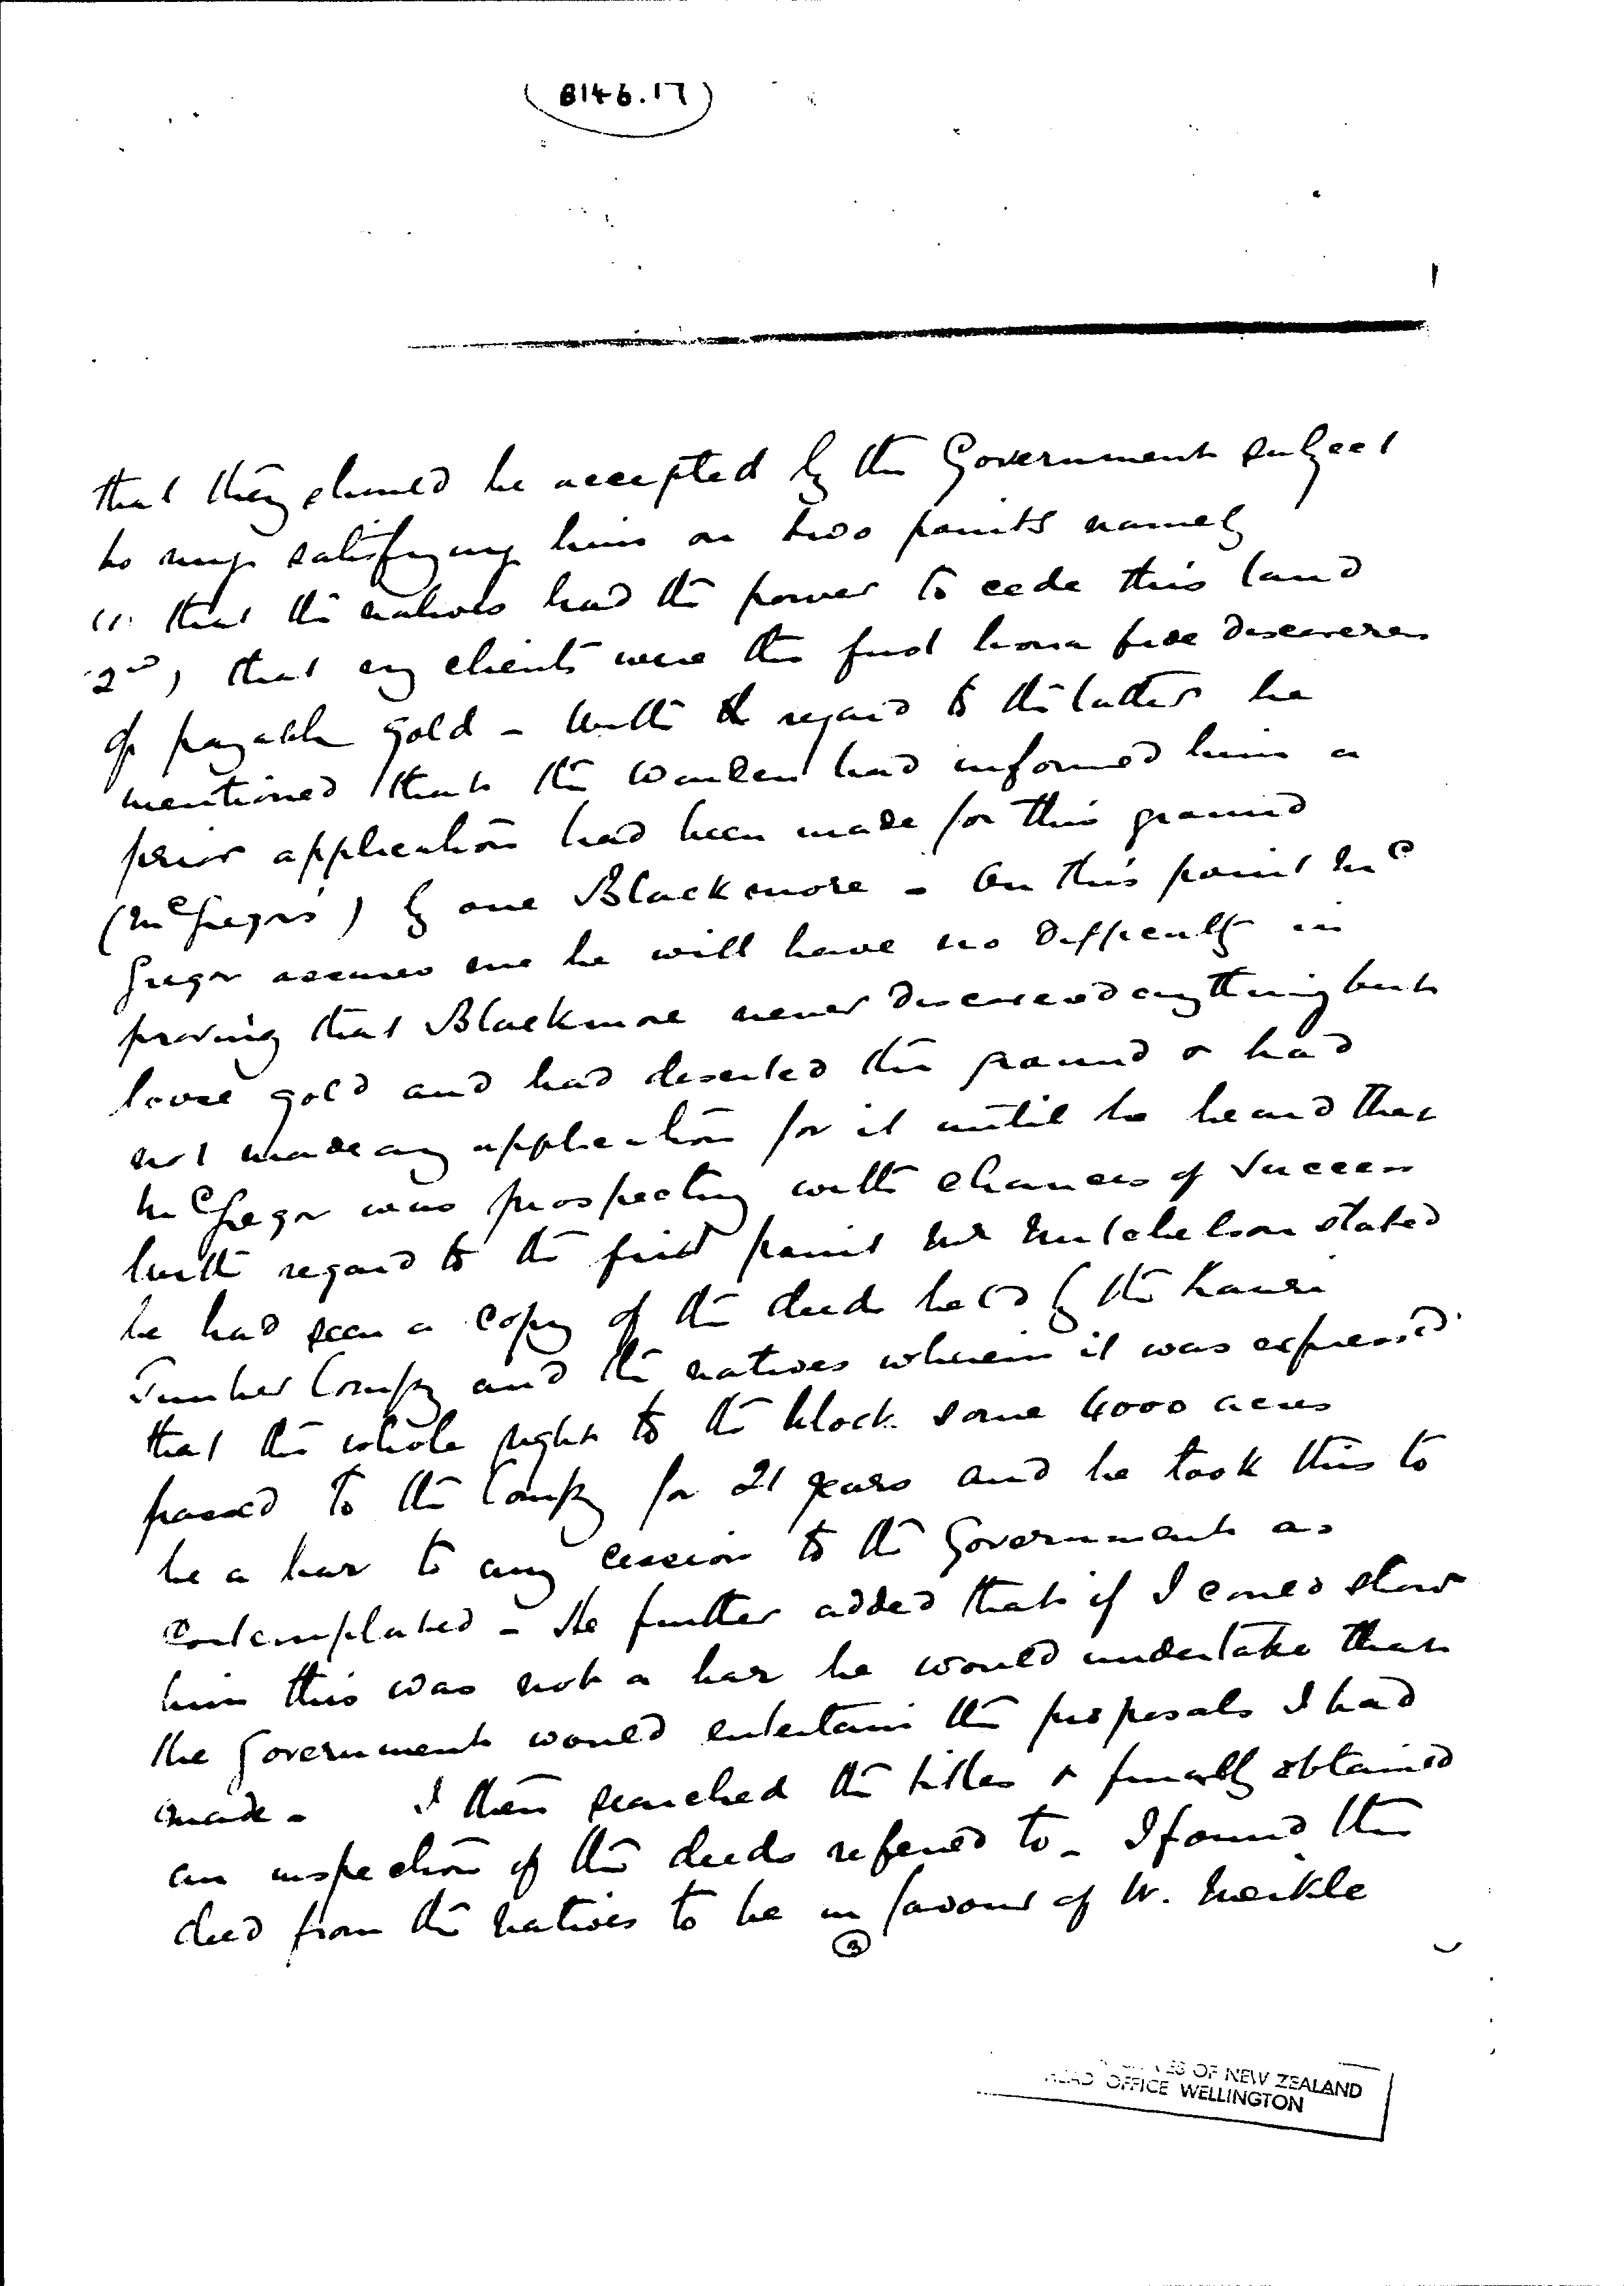 B146.17
that they should be accepted by the Government subject
to my satisfying him on two points namely
(1) that the natives had the power to cede this land
2nd) that my clients were the first bona fide discoverers
of payable gold - With regard to the latter he
mentioned that the Warden had informed him a
prior application had been made for this ground
(McGregor's) by one Blackmore - On this point Mc
Gregor assures me he will have no difficulty in
proving that Blackmore never discovered anything but
loose gold and had deserted the ground or had
not made any application for it until he heard that
McGregor was prospecting with chances of success
With regard to the first point Mr Mitchelson stated
he had seen a copy of the deeds held by the Kauri
Timber Compy and the natives wherein it was expressed
that the whole right to the block some 4000 acres
passed to the Compy for 21 years and he took this to
be a bar to any cession to the Government as
contemplated - He further added that if I could show
him this was not a bar he would undertake that
the Government would entertain the proposals I had
made - I then searched the titles & finally obtained
an inspection of the deeds referred to - I found the
deed from the natives to be in favour of W. Meikle
3
ES OF NEW ZEALAND
HEAD OFFICE WELLINGTON